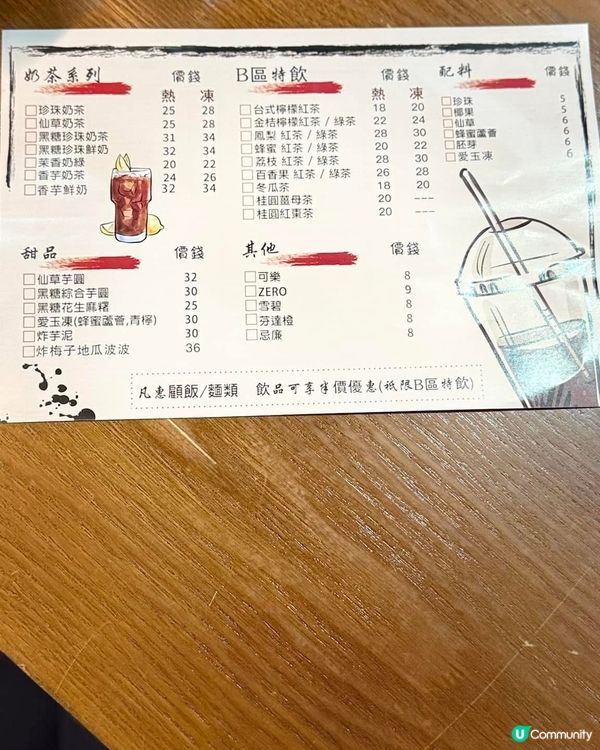 奶茶系列 價錢
熱 凍
珍珠奶茶 25 28
仙草奶茶 25 28
黑糖珍珠奶茶 31 34
黑糖珍珠鮮奶 32 34
茉香奶綠 20 22
香芋奶茶 24 26
香芋鮮奶 32 34
B區特飲 價錢
熱 凍
台式檸檬紅茶 18 20
金桔檸檬紅茶 / 綠茶 22 24
鳳梨 紅茶 / 綠茶 28 30
蜂蜜 紅茶 / 綠茶 20 22
荔枝 紅茶 / 綠茶 28 30
百香果 紅茶 / 綠茶 26 28
冬瓜茶 18 20
桂圓薑母茶 20 ---
桂圓紅棗茶 20 ---
配料 價錢
珍珠 5
椰果 5
仙草 6
蜂蜜蘆薈 6
胚芽 6
愛玉凍 6
甜品 價錢
仙草芋圓 32
黑糖綜合芋圓 30
黑糖花生麻糬 25
愛玉凍(蜂蜜蘆薈,青檸) 30
炸芋泥 30
炸梅子地瓜波波 36
其他 價錢
可樂 8
ZERO 9
雪碧 8
芬達橙 8
忌廉 8
凡惠顧飯/麵類 飲品可享半價優惠(祇限B區特飲)
U Community